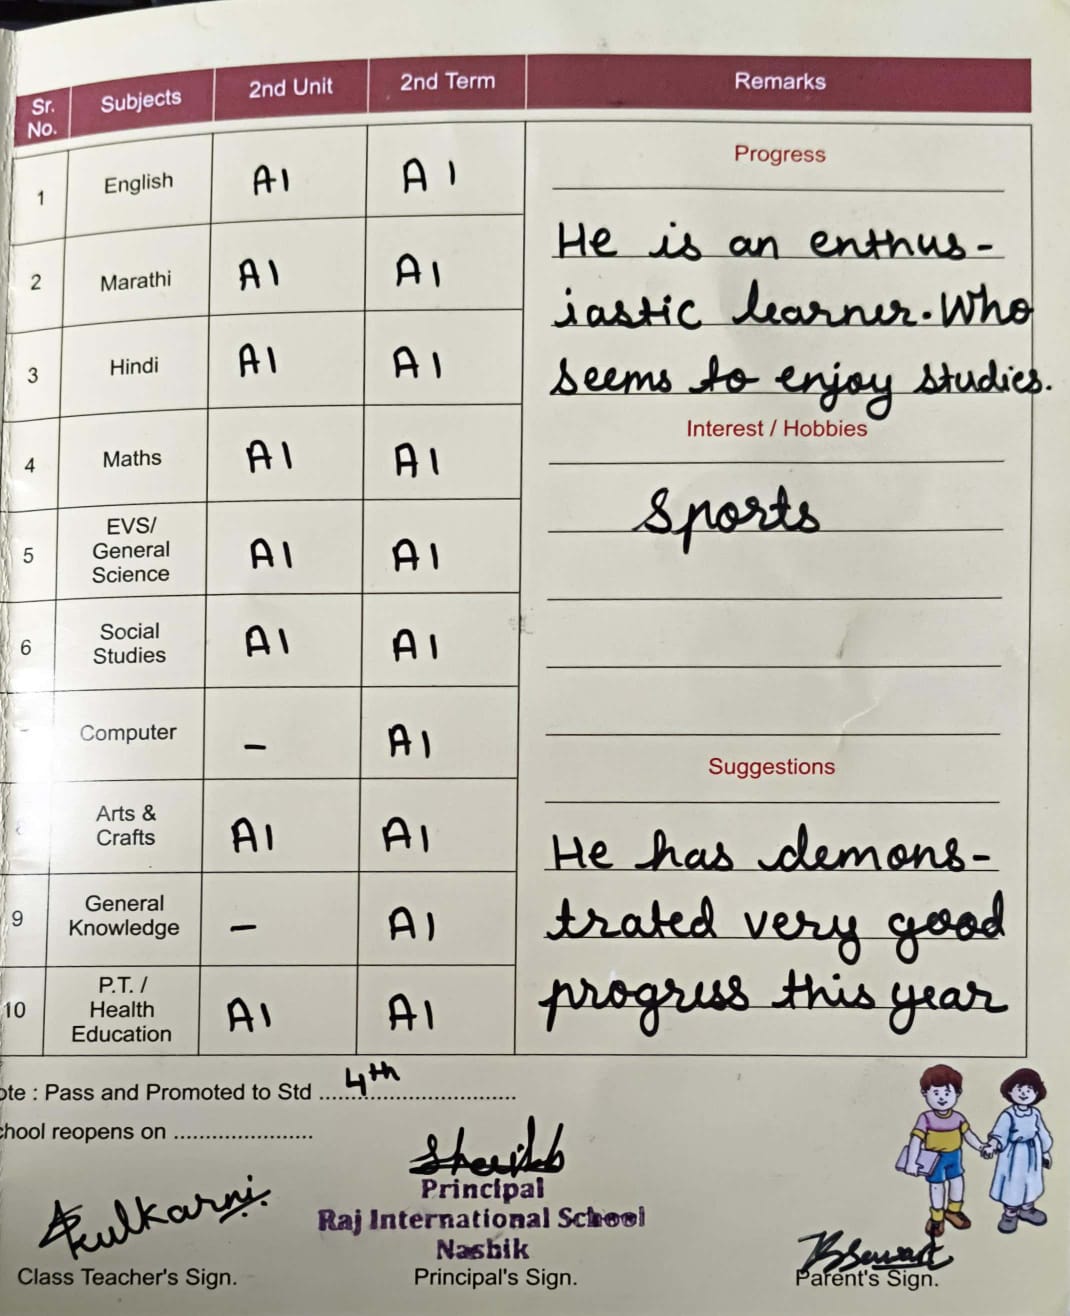 Sr. No. Subjects 2nd Unit 2nd Term Remarks
1 English A1 A1
2 Marathi A1 A1
3 Hindi A1 A1
4 Maths A1 A1
5 EVS/ General Science A1 A1
6 Social Studies A1 A1
Computer - A1
Arts & Crafts A1 A1
9 General Knowledge - A1
10 P.T. / Health Education A1 A1
Progress
He is an enthus-
iastic learner. Who
seems to enjoy studies.
Interest / Hobbies
Sports
Suggestions
He has demons-
trated very good
progress this year
ote : Pass and Promoted to Std 4th
chool reopens on ........................
Kulkarni
Principal
Raj International School
Nashik
Class Teacher's Sign. Principal's Sign. Parent's Sign.